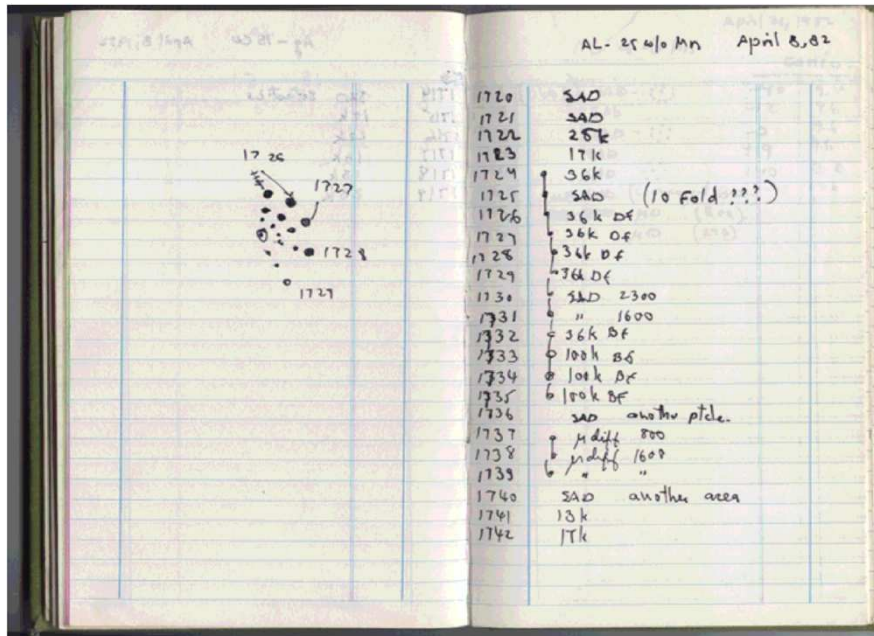 1726
1727
1728
1729
AL-25 w/o Mn April 8, 82
1720 SAD
1721 SAD
1722 25k
1723 17k
1724 36k
1725 SAD (10 Fold ???)
1726 36k Df
1727 36k Df
1728 36k Df
1729 36k Df
1730 SAD 2300
1731 " 1600
1732 36k Bf
1733 100k Bf
1734 100k Bf
1735 100k BF
1736 SAD another ptcle.
1737 μ diff 800
1738 μ diff 1600
1739 " "
1740 SAD another area
1741 13k
1742 17k